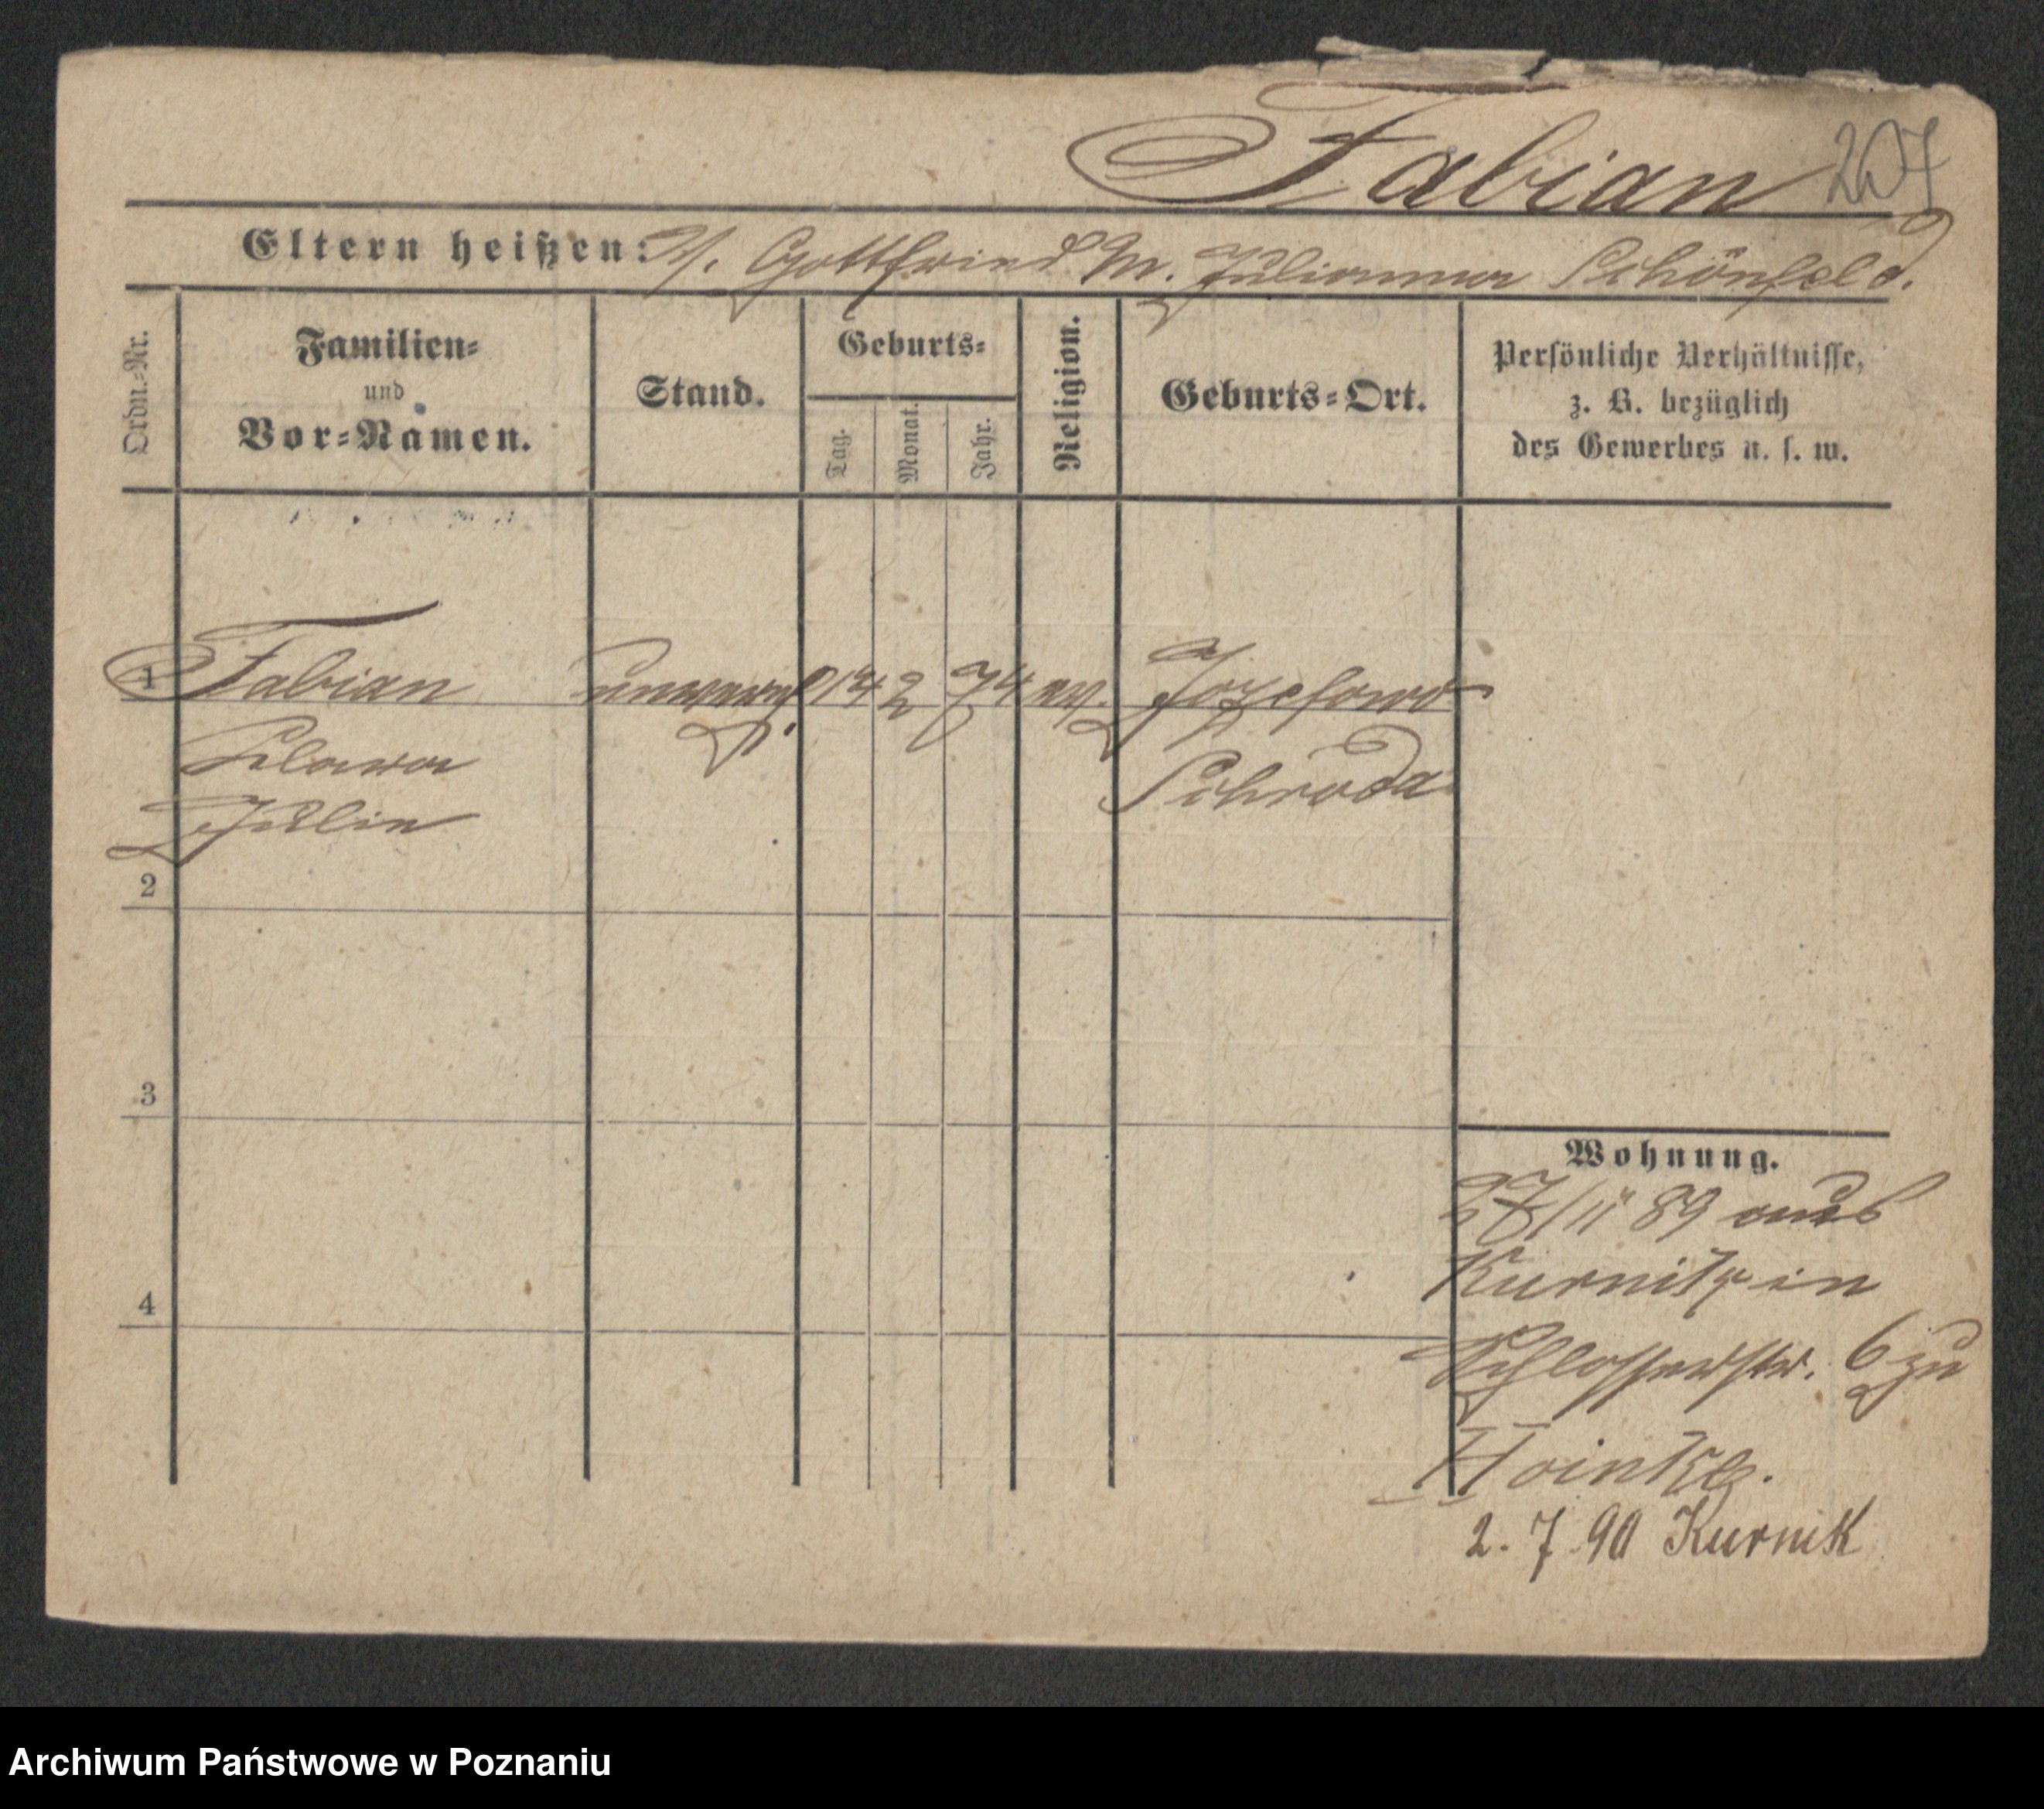 Fabian 207
Eltern heißen: V. Gottfried M. Julianna Schönfeld.
Ordn.-Nr.
Familien-
und
Vor-Namen.
Stand.
Geburts-
Tag.
Monat.
Jahr.
Religion.
Geburts-Ort.
Persönliche Verhältnisse,
z. B. bezüglich
des Gewerbes u. s. w.
1 Fabian unvereh. 14 2 74 ev. Jozefowo
Schroda
2
3
4
Wohnung.
27/11 89 aus
Kurnik in
Schlosserstr. 6 zu
Hoinke.
2. 7. 90 Kurnik
Archiwum Państwowe w Poznaniu